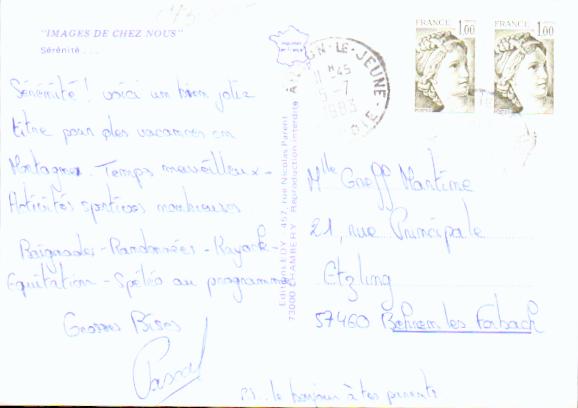 "IMAGES DE CHEZ NOUS"
Sérénité . . .
Sérénité ! voici un bien jolie
titre pour des vacances en
Montagne. Temps merveilleux -
Activités sportives nombreuses
Baignades - Randonnées - Kayak -
Equitation - Spéléo au programme
Grosses Bises
Pascal
P.S. .. le bonjour à tes parents
Editions EDY - 457, rue Nicolas Parent
73000 CHAMBERY - Reproduction interdite
FRANCE 1,00
FRANCE 1,00
-LE-JEUNE-
11 H 45
-7
1983
Mlle Greff Martine
21, rue Principale
Etzling
57460 Behren les Forbach